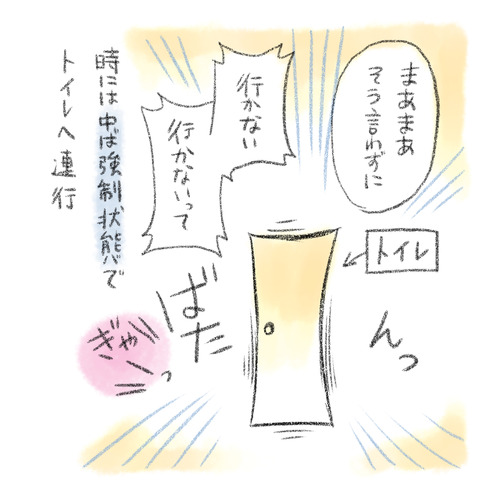 まあまあ
そう言わずに
行かない
行かないって
トイレ
ばたんっ
ぎゃーっ
時には半ば強制状態で
トイレへ連行